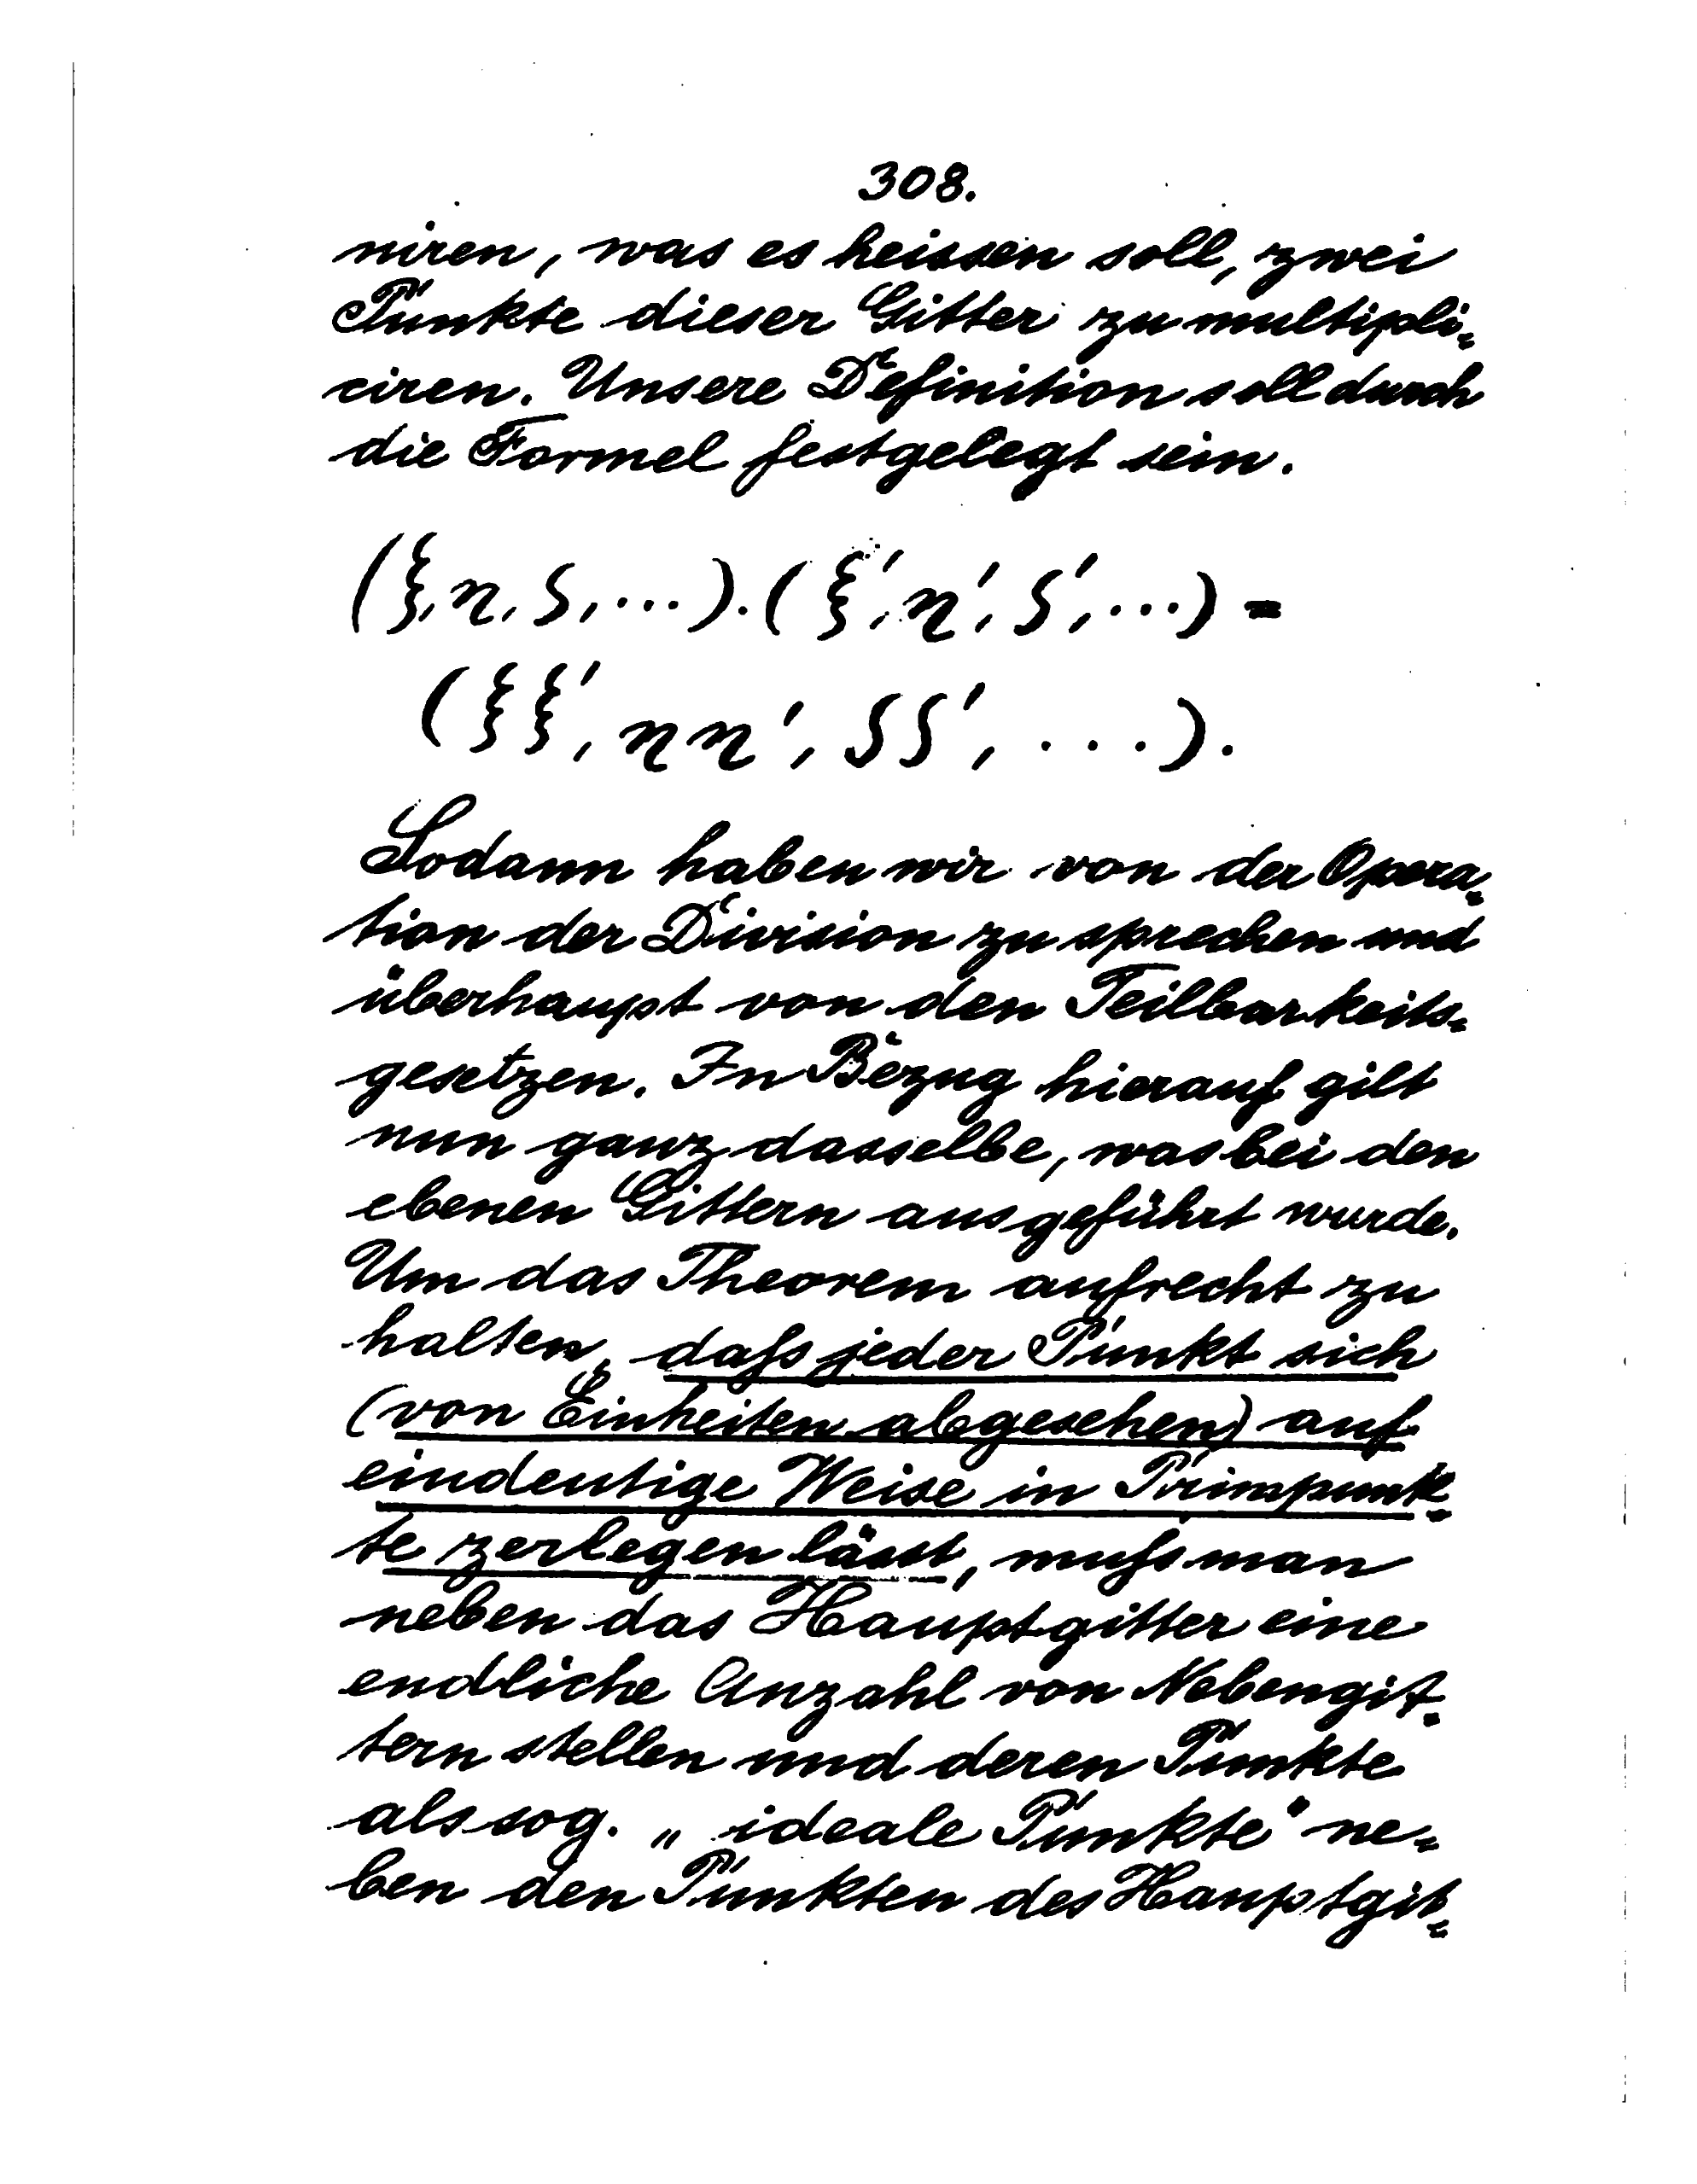 308.
niren, was es heissen soll, zwei
Punkte dieser Gitter zu multipli=
ciren. Unsere Definition soll durch
die Formel festgelegt sein.
(ξ, η, ζ, ...).(ξ', η', ζ', ...) =
(ξξ', ηη', ζζ', ...).
Sodann haben wir von der Opera=
tion der Division zu sprechen und
überhaupt von den Teilbarkeits=
gesetzen. In Bezug hierauf gilt
nun ganz dasselbe, was bei den
ebenen Gittern ausgeführt wurde.
Um das Theorem aufrecht zu
halten, daß jeder Punkt sich
(von Einheiten abgesehen) auf
eindeutige Weise in Primpunk=
te zerlegen lässt, muß man
neben das Hauptgitter eine
endliche Anzahl von Nebengit=
tern stellen und deren Punkte
als sog. „ideale Punkte" ne=
ben den Punkten des Hauptgit=